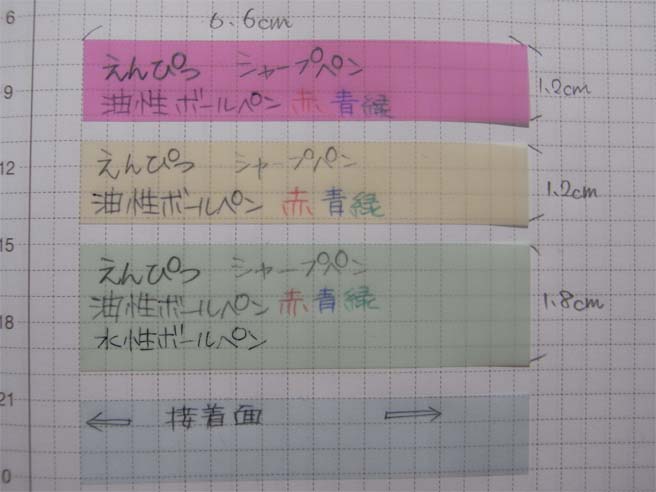 6.6cm
6
えんぴつ シャープペン
1.2cm
9
油性ボールペン 赤 青 緑
12
えんぴつ シャープペン
1.2cm
油性ボールペン 赤 青 緑
15
えんぴつ シャープペン
油性ボールペン 赤 青 緑
1.8cm
18
水性ボールペン
21
← 接着面 →
0